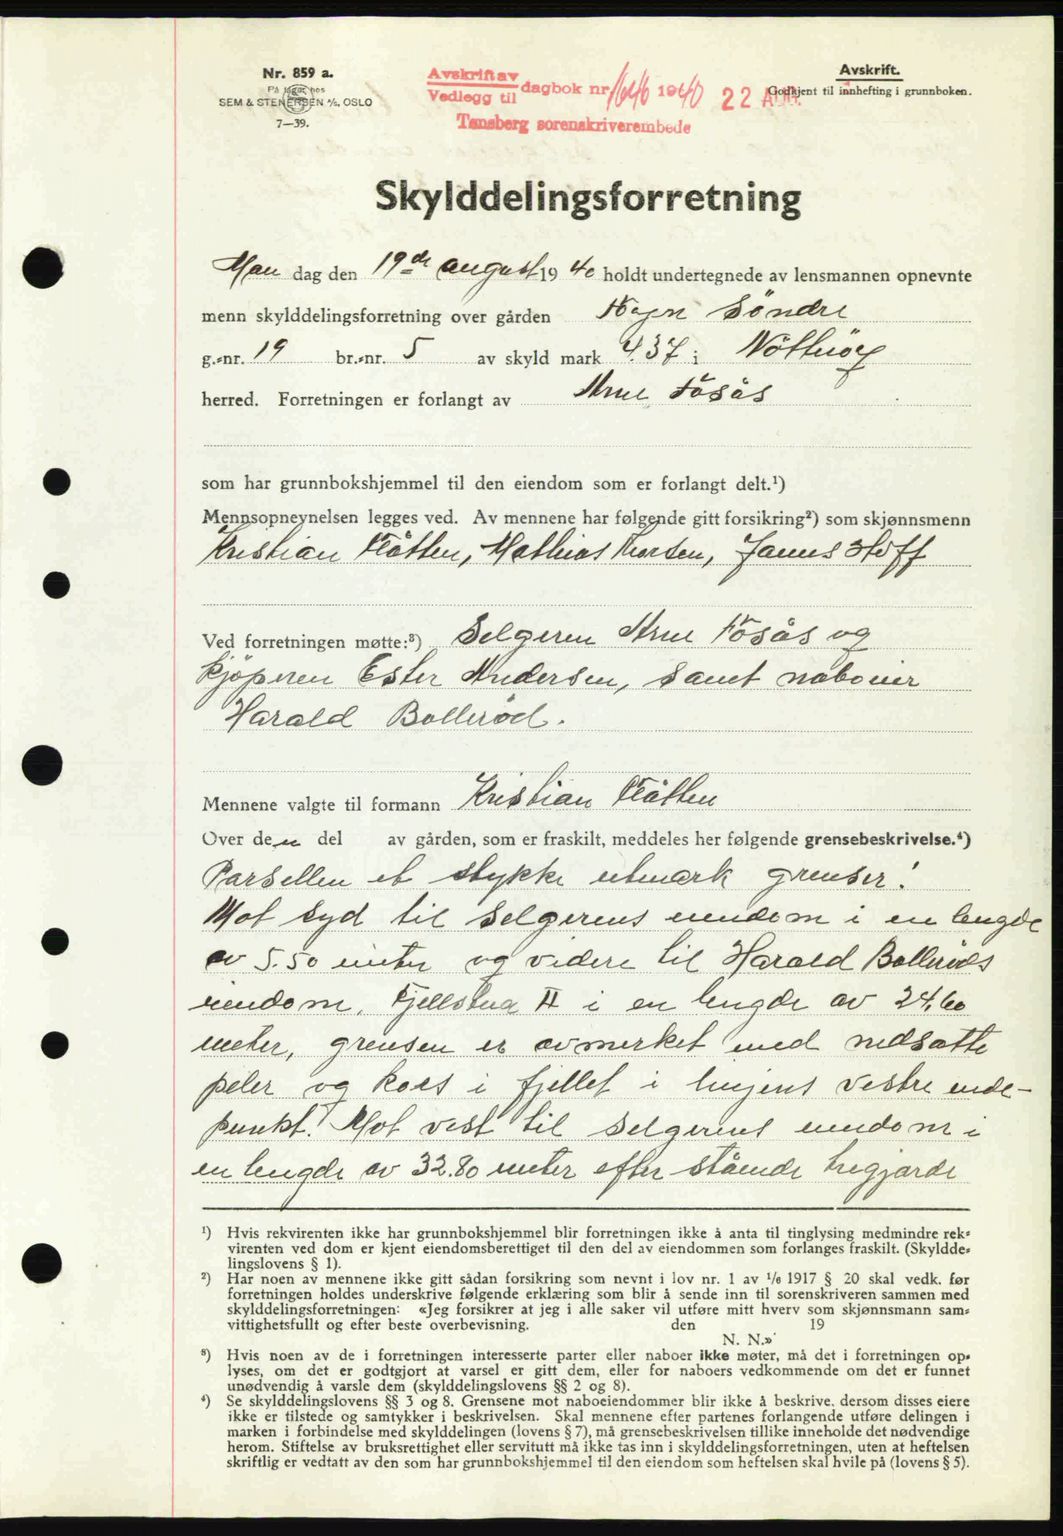 Nr. 859 a.
På lager hos
SEM & STENERSEN A/S, OSLO
7—39.
Avskrift av
Vedlegg til dagbok nr. 1646 1940 22 AUG.
Tønsberg sorenskriverembede
Avskrift.
Godkjent til innhefting i grunnboken.
Skylddelingsforretning
Man dag den 19de august 1940 holdt undertegnede av lensmannen opnevnte
menn skylddelingsforretning over gården Søndre
g.-nr. 19 br.-nr. 5 av skyld mark 4.37 i Nøtterøy
herred. Forretningen er forlangt av Arne Fösås
som har grunnbokshjemmel til den eiendom som er forlangt delt.¹)
Mennsopnevnelsen legges ved. Av mennene har følgende gitt forsikring²) som skjønnsmenn
Kristian Flåtten, Mathias Thorsen, James Hoff
Ved forretningen møtte:³) Selgeren Arne Fösås og
kjöperen Ester Andersen, samt naboeier
Harald Bolleröd.
Mennene valgte til formann Kristian Flåtten
Over den del av gården, som er fraskilt, meddeles her følgende grensebeskrivelse.⁴)
Parsellen et stykke utmark grenser:
Mot syd til selgerens eiendom i en lengde
av 5.50 meter og videre til Harald Bolleröds
eiendom, Fjellstua II i en lengde av 24,60
meter, grensen er avmerket med nedsatte
peler og kors i fjellet i linjens vestre ende-
punkt. Mot vest til selgerens eiendom i
en lengde av 32.80 meter efter stående tregjærde
¹) Hvis rekvirenten ikke har grunnbokshjemmel blir forretningen ikke å anta til tinglysing medmindre rek-
virenten ved dom er kjent eiendomsberettiget til den del av eiendommen som forlanges fraskilt. (Skyldde-
lingslovens § 1).
²) Har noen av mennene ikke gitt sådan forsikring som nevnt i lov nr. 1 av 1/6 1917 § 20 skal vedk. før
forretningen holdes underskrive følgende erklæring som blir å sende inn til sorenskriveren sammen med
skylddelingsforretningen: «Jeg forsikrer at jeg i alle saker vil utføre mitt hverv som skjønnsmann sam-
vittighetsfullt og efter beste overbevisning. den 19
N. N.»
³) Hvis noen av de i forretningen interesserte parter eller naboer ikke møter, må det i forretningen op-
lyses, om det er godtgjort at varsel er gitt dem, eller for naboers vedkommende om det er funnet
unødvendig å varsle dem (skylddelingslovens §§ 2 og 8).
⁴) Se skylddelingslovens §§ 3 og 8. Grensene mot naboeiendommer blir ikke å beskrive, dersom disses eiere
ikke er tilstede og samtykker i beskrivelsen. Skal mennene efter partenes forlangende utføre delingen i
marken i forbindelse med skylddelingen (lovens § 7), må grensebeskrivelsen tillike inneholde det nødvendige
herom. Stiftelse av bruksrettighet eller servitutt må ikke tas inn i skylddelingsforretningen, uten at heftelsen
skriftlig er vedtatt av den som har grunnbokshjemmel til den eiendom som heftelsen skal hvile på (lovens § 5).